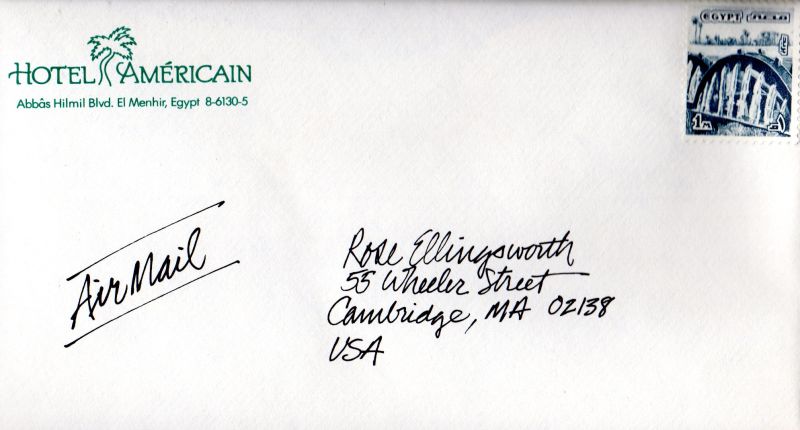 HOTEL AMÉRICAIN
Abbâs Hilmil Blvd. El Menhir, Egypt 8-6130-5
EGYPT
1M
Air Mail
Rose Ellingsworth
55 Wheeler Street
Cambridge, MA 02138
USA